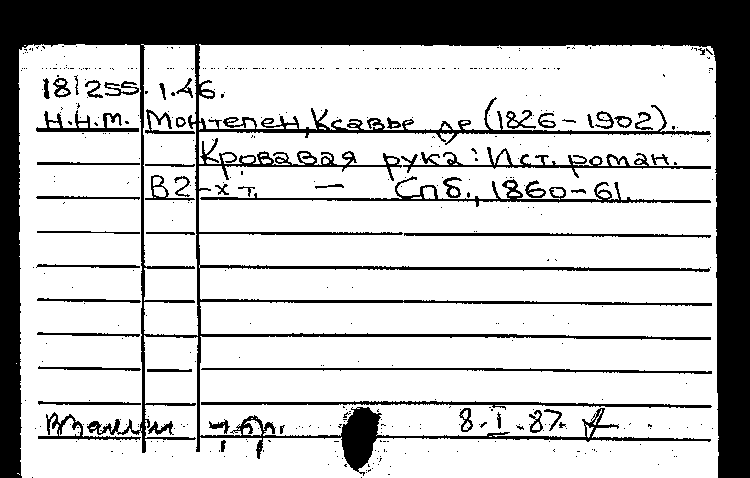 18/255.1.46.
Н.Н.М. Монтепен, Ксавье де (1826-1902).
Кровавая рука: Ист. роман.
В 2-х т. — Спб., 1860-61.
Взамен 8.I.87.